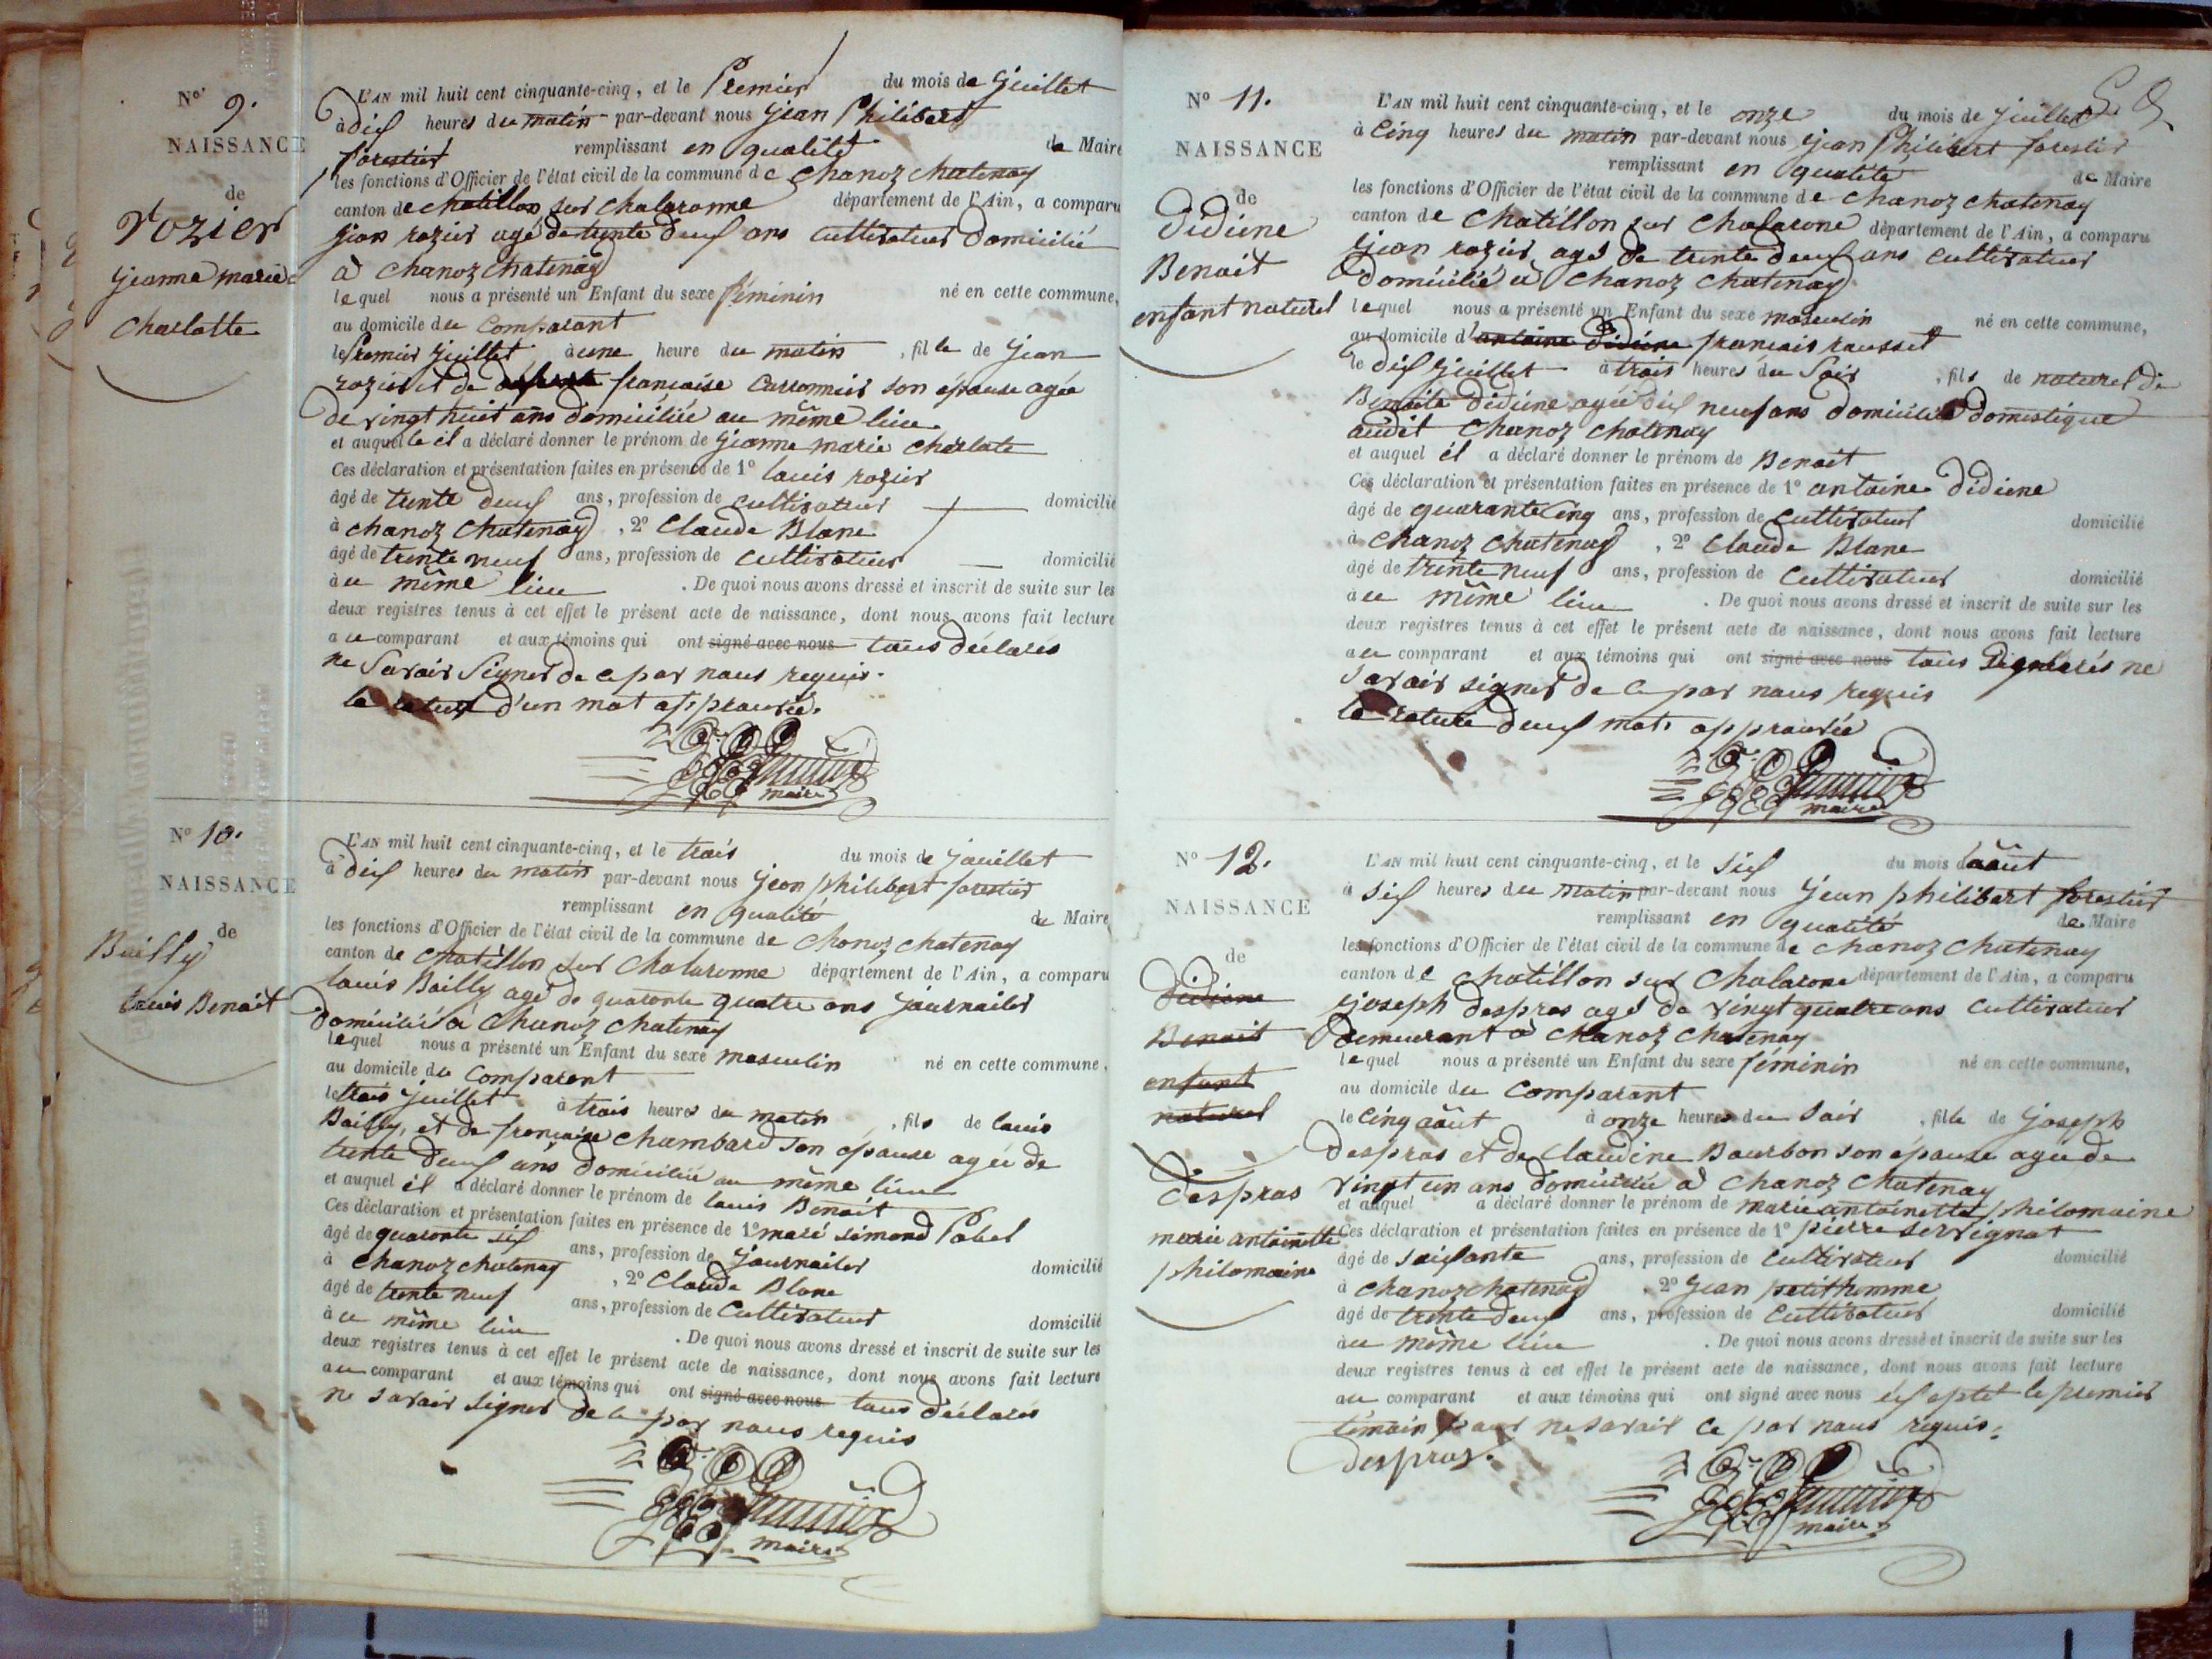 N° 9.
NAISSANCE
de
Rozier
jeanne marie
Charlotte
L'AN mil huit cent cinquante-cinq, et le Premier du mois de juillet
à dix heures du matin par-devant nous jean Philibert
forestier remplissant en qualité de Maire
les fonctions d'Officier de l'état civil de la commune de chanoz chatenay
canton de chatillon sur chalaronne département de l'Ain, a comparu
jean rozier agé de trente deux ans cultivateur domicilié
à chanoz chatenay
lequel nous a présenté un Enfant du sexe féminin né en cette commune,
au domicile du comparant
le Premier juillet à une heure du matin, fille de jean
rozier et de françoise Carronnier son épouse agée
de vingt huit ans domiciliée au même lieu.
et auquelle il a déclaré donner le prénom de jeanne marie charlote
Ces déclaration et présentation faites en présence de 1° louis rozier
âgé de trente deux ans, profession de cultivateur domicilié
à chanoz chatenay, 2° Claude Blanc
âgé de trente neuf ans, profession de cultivateur domicilié
à u même lieu. De quoi nous avons dressé et inscrit de suite sur les
deux registres tenus à cet effet le présent acte de naissance, dont nous avons fait lecture
au comparant et aux témoins qui ont signé avec nous tous déclarés
ne Savoir Signer de ce par nous requis.
la rature d'un mot approuvée.
maire
N° 10.
NAISSANCE
de
Bailly
Louis Benoit
L'AN mil huit cent cinquante-cinq, et le trois du mois de jouillet
à dix heures du matin par-devant nous jean philibert forestier
remplissant en qualité de Maire
les fonctions d'Officier de l'état civil de la commune de chonoz chatenay
canton de chatillon sur chalaronne département de l'Ain, a comparu
louis Bailly agé de quatante quatre ans journailer
domicilié à chanoz chatenay
lequel nous a présenté un Enfant du sexe masculin né en cette commune,
au domicile du comparent
le trois juillet à trois heures du matin, fils de louis
Bailly, et de françoise Chambard son épouse agée de
trente deux ans domiciliée au même lieu
et auquel il a déclaré donner le prénom de louis Benoit
Ces déclaration et présentation faites en présence de 1° simond
âgé de quarante six ans, profession de journailer domicilié
à chanoz chatenay, 2° Claude Blanc
âgé de trente neuf ans, profession de Cultivateur domicilié
à u même lieu. De quoi nous avons dressé et inscrit de suite sur les
deux registres tenus à cet effet le présent acte de naissance, dont nous avons fait lecture
au comparant et aux témoins qui ont signé avec nous tous déclarés
ne savoir signer de ce par nous requis
maire
N° 11.
NAISSANCE
de
Didiene
Benoit
enfant naturel
L'AN mil huit cent cinquante-cinq, et le onze du mois de juillet
à Cinq heures du matin par-devant nous jean Philibert forestier
remplissant en qualité de Maire
les fonctions d'Officier de l'état civil de la commune de chanoz chatenay
canton de chatillon sur chalarone département de l'Ain, a comparu
jean rozier agé de trente deux ans cultivateur
domicilié à chanoz chatenay
lequel nous a présenté un Enfant du sexe masculin né en cette commune,
au domicile d'antoine didiene francois rousset
le dix juillet à trois heures du Soir, fils de naturel de
Benoite didiene agée dix neuf ans domiciliée domestique
audit chanoz chatenay
et auquel il a déclaré donner le prénom de Benoit
Ces déclaration et présentation faites en présence de 1° antoine didiene
âgé de quarante cinq ans, profession de cultivateur domicilié
à chanoz chatenay, 2° Claude Blanc
âgé de trente neuf ans, profession de cultivateur domicilié
à u même lieu. De quoi nous avons dressé et inscrit de suite sur les
deux registres tenus à cet effet le présent acte de naissance, dont nous avons fait lecture
au comparant et aux témoins qui ont signé avec nous tous ne
savoir signer de ce par nous requis
la rature deux mots approuvée
maire
N° 12.
NAISSANCE
de
Didiene
Benoit
enfant
naturel
despras
marie antoinette
philomaine
L'AN mil huit cent cinquante-cinq, et le six du mois d'août
à six heures du matin par-devant nous jean philibert forestier
remplissant en qualité de Maire
les fonctions d'Officier de l'état civil de la commune de chanoz chatenay
canton de chatillon sur chalarone département de l'Ain, a comparu
joseph despras agé de vingt quatre ans cultivateur
demeurant à chanoz chatenay
lequel nous a présenté un Enfant du sexe féminin né en cette commune,
au domicile du comparant
le cinq août à onze heures du soir, fille de joseph
despras et de Claudine Bourbon son épouse agée de
vingt un ans domiciliée à chanoz chatenay
et auquel a déclaré donner le prénom de marie antoinette philomaine
Ces déclaration et présentation faites en présence de 1° pierre servignat
âgé de soixante ans, profession de cultivateur domicilié
à chanoz chatenay, 2° jean petithomme
âgé de trente deux ans, profession de cultivateur domicilié
à u même lieu. De quoi nous avons dressé et inscrit de suite sur les
deux registres tenus à cet effet le présent acte de naissance, dont nous avons fait lecture
au comparant et aux témoins qui ont signé avec nous exseptet le premier
témoin pour ne savoir ce par nous requis.
despras.
maire